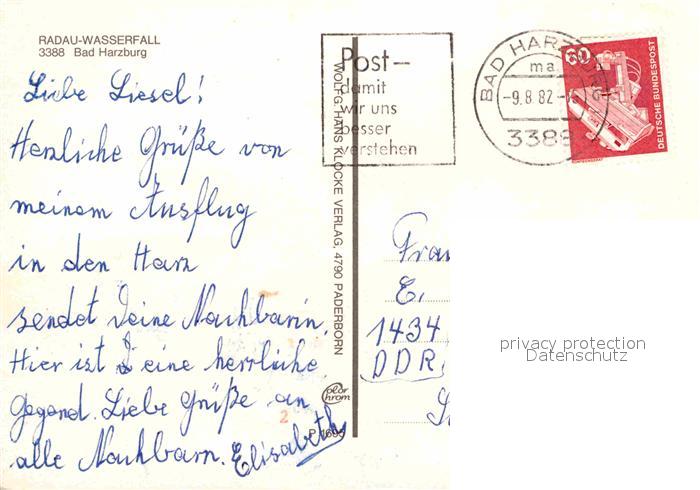 RADAU-WASSERFALL
3388 Bad Harzburg
Liebe Liesel!
Herzliche Grüße von
meinem Ausflug
in den Harz
sendet Deine Nachbarin.
Hier ist eine herrliche
Gegend. Liebe Grüße an
alle Nachbarn. Elisabeth
Post–
damit
wir uns
besser
verstehen
WOLFG. HANS KLOCKE VERLAG, 4790 PADERBORN
color
chrom
2
BAD HARZBURG
ma
-9.8.82-
3388
60
DEUTSCHE BUNDESPOST
Frau
E.
1434
DDR
privacy protection
Datenschutz